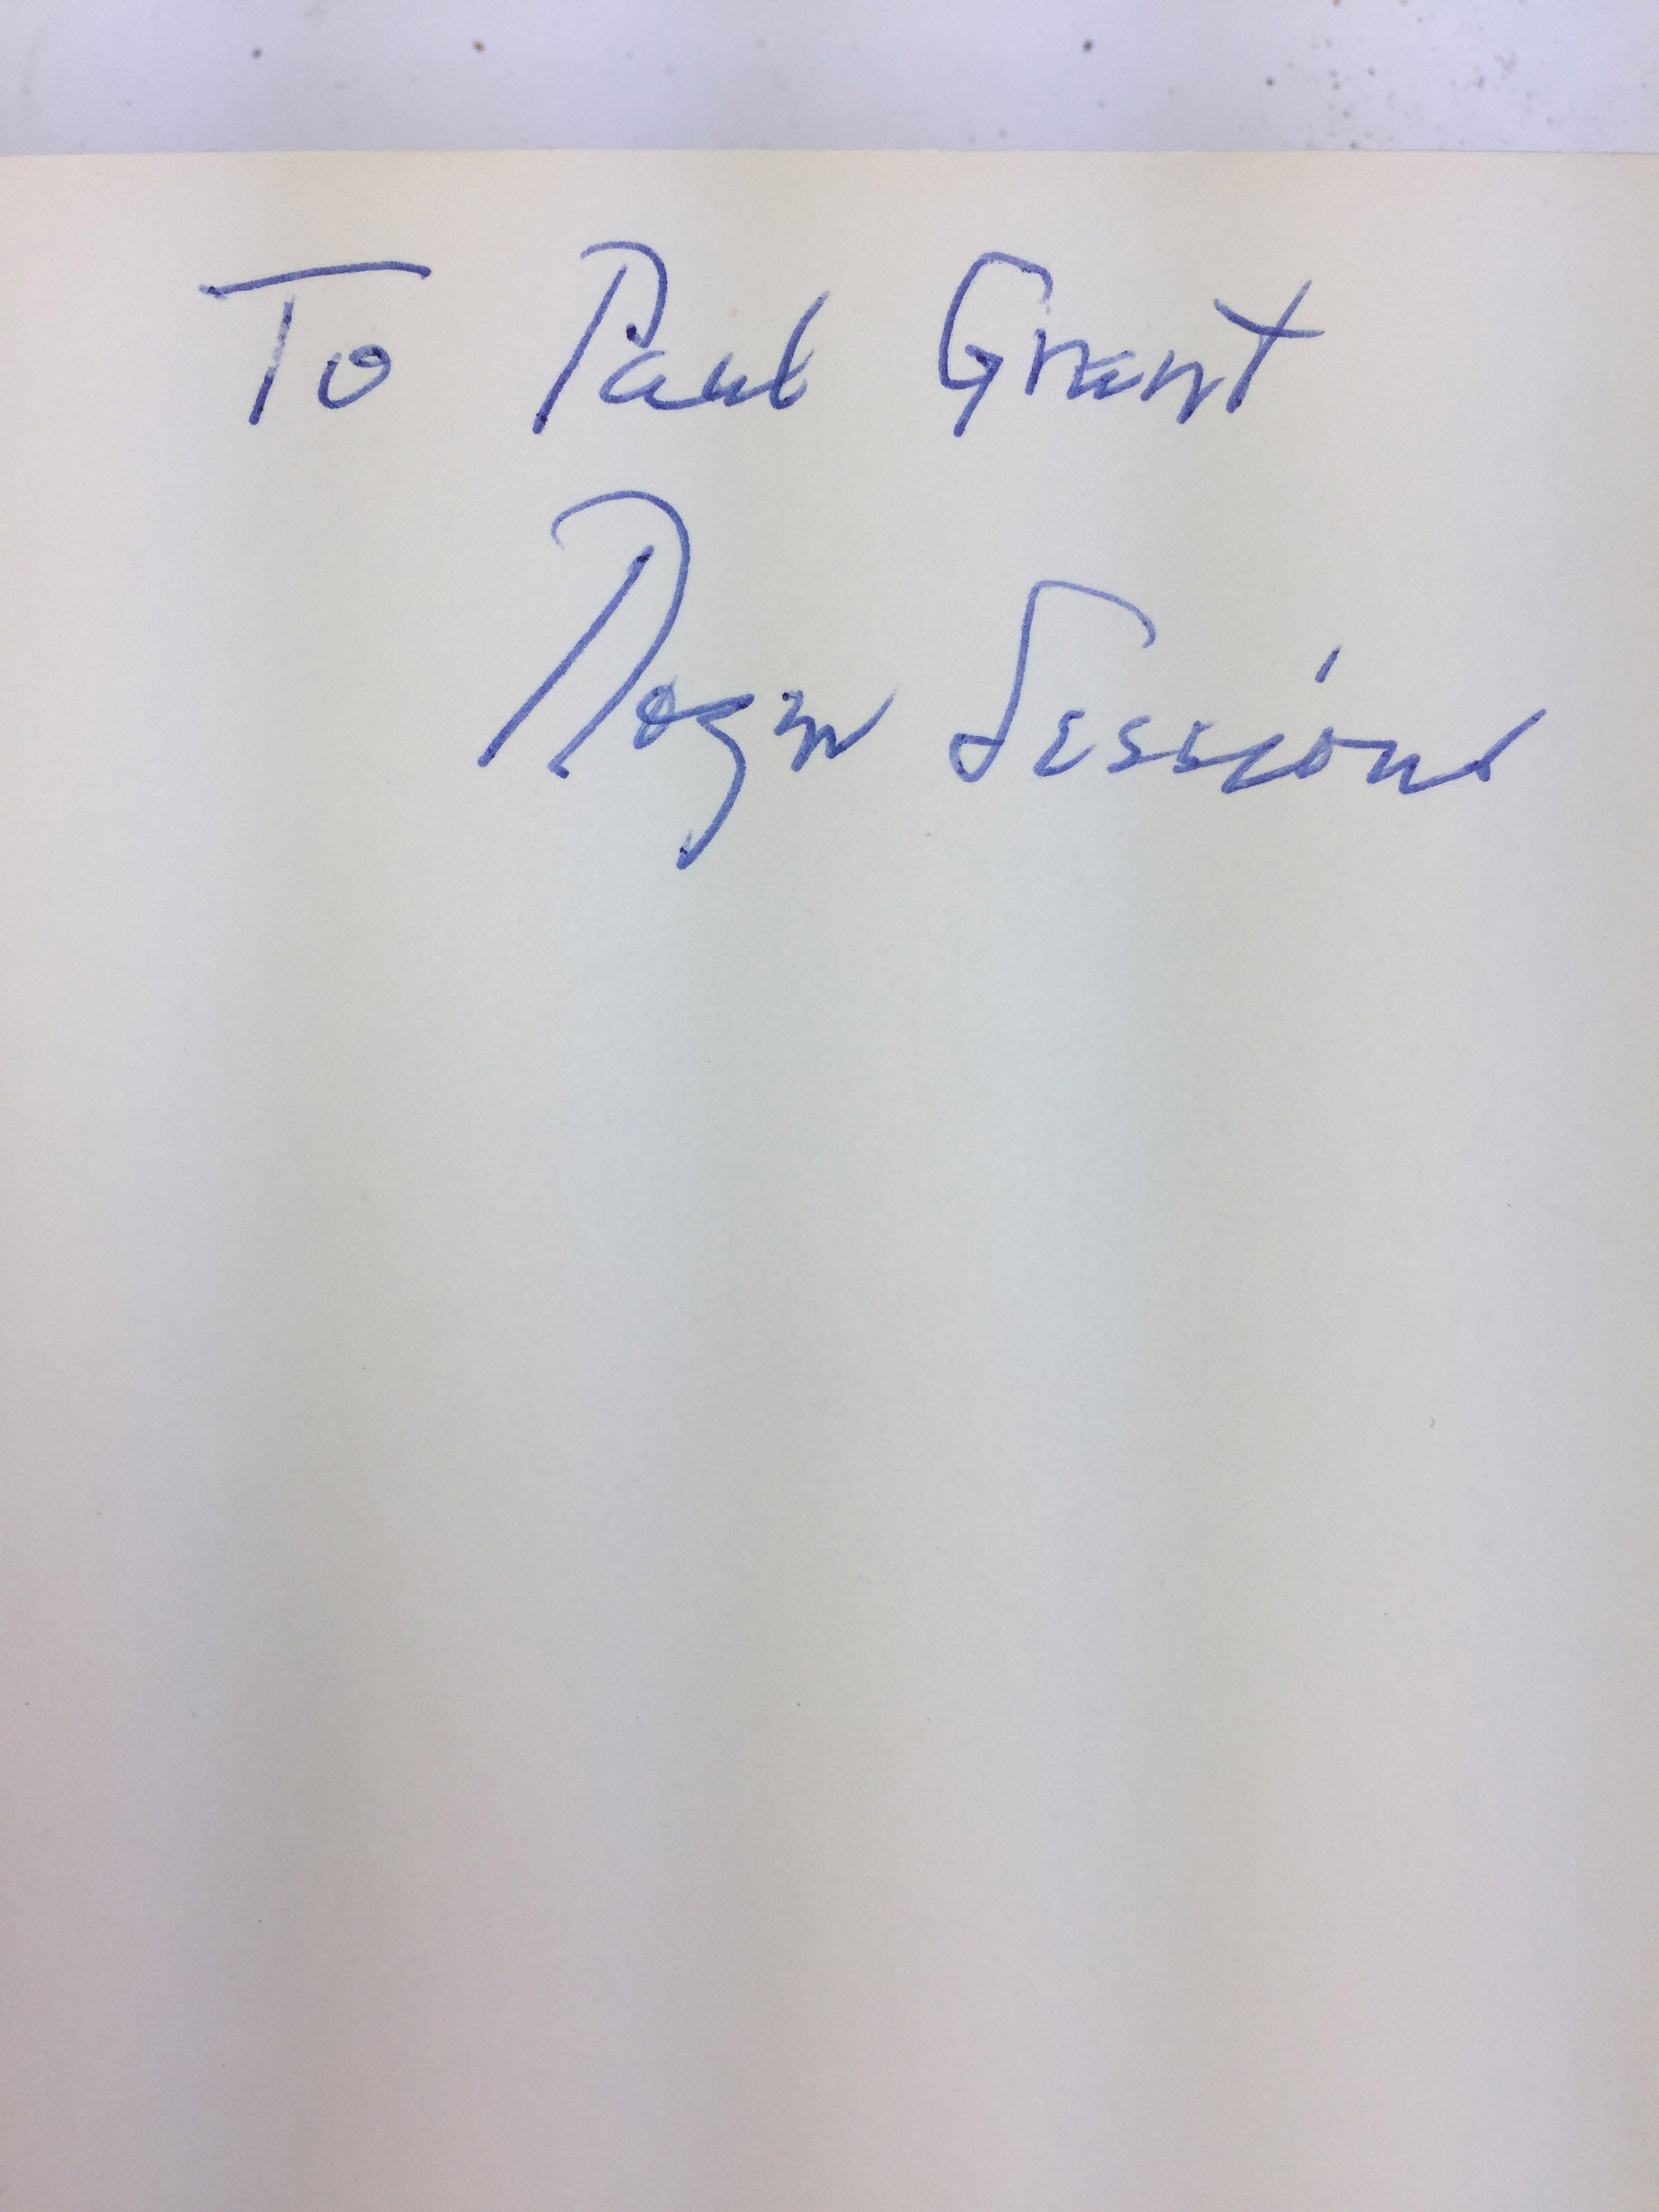 To Paul Grant
Roger Sessions